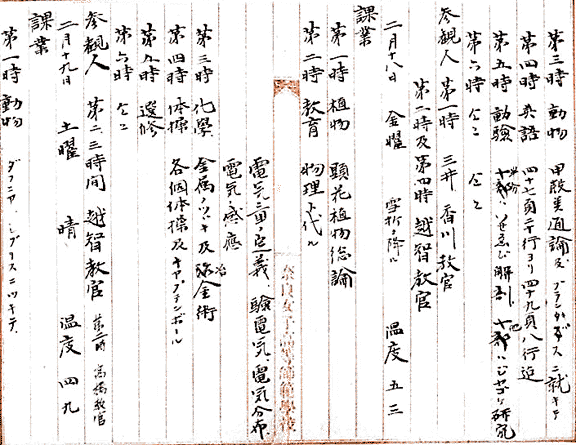 第三時 動物 甲殻類通論及ブランカダス二就キテ
第四時 英語 四十七頁二千行ヨリ四十九頁八行迄
第五時 動驗
第六時 仝上 仝上
参観人 第一時 三井 香川教官
第二時及第四時 越智教官
二月十八日 金曜 雪折々降ル 温度 五三
課業
第一時 植物 顕花植物総論
第二時 教育 物理ト代ル
電気量ノ定義、驗電気、電気分布
電気感應
第三時 化學 金属ノツヾキ及冶金術
第四時 体操 各個体操及キャプテンボール
第五時 選修
第六時 仝上
参観人 第二、三時間 越智教官 第二時 高橋教官
二月十九日 土曜 晴 温度 四九
課業
第一時 動物 ダフニヤ、シプリスニツキテ
奈良女子高等師範學校